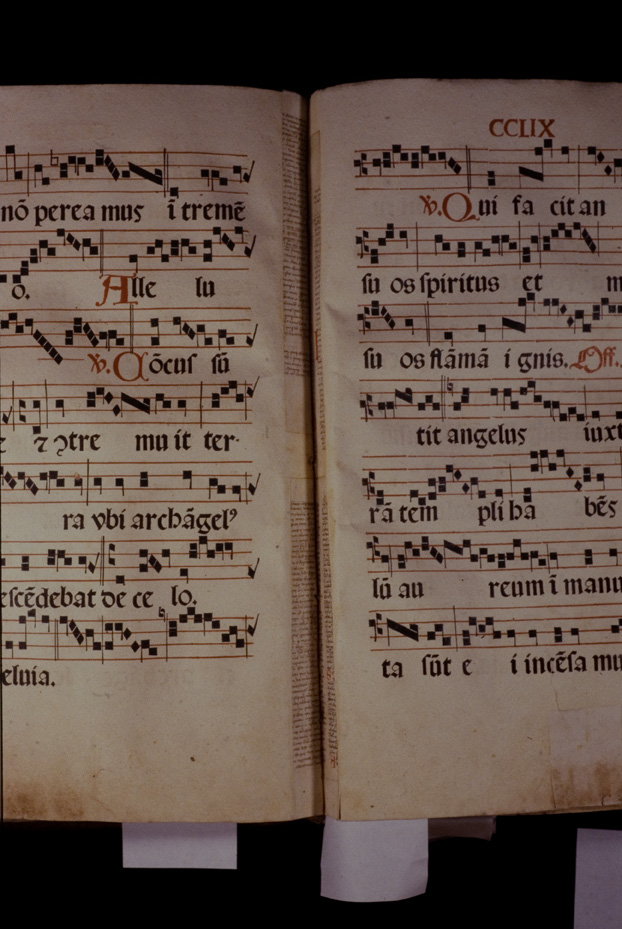 nõ perea mus ĩ tremẽ
o. Alle lu
℣. Cõcus sũ
⁊ ↄtre mu it ter
ra vbi archãgelꝰ
escẽdebat de ce lo.
eluia.
CCLIX
℣. Qui fa cit an
su os spiritus et m
su os flãmã i gnis. Off.
tit angelus iuxt
rã tem pli ha bẽs
lũ au reum ĩ manu
ta sũt e i incẽsa mu